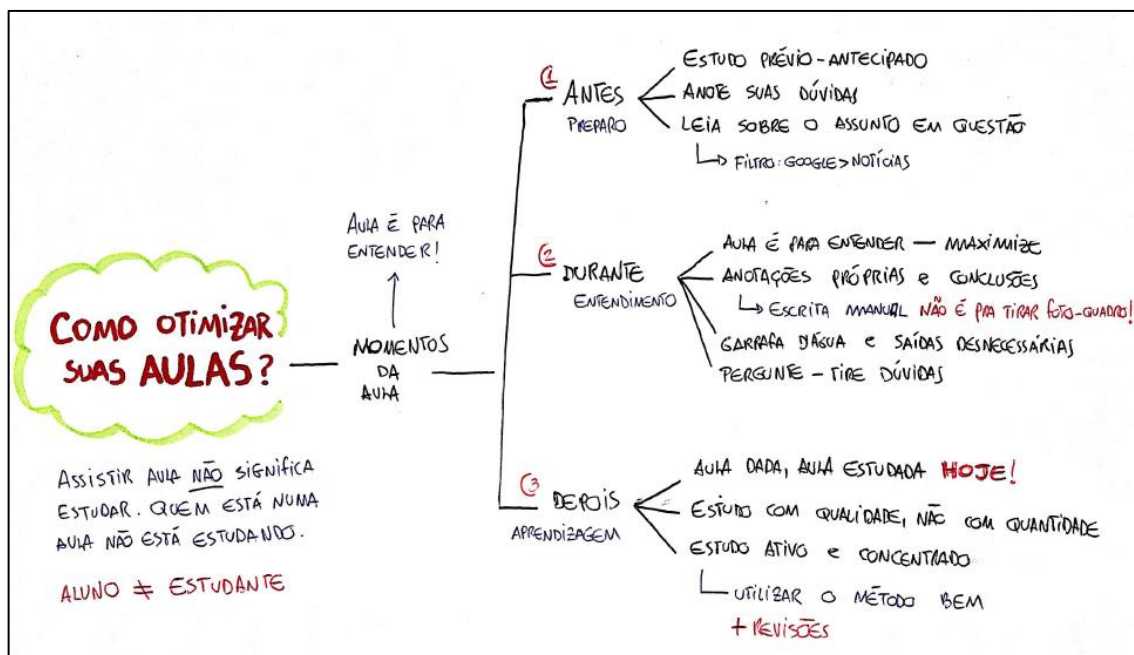 COMO OTIMIZAR
SUAS AULAS?
ASSISTIR AULA NÃO SIGNIFICA
ESTUDAR. QUEM ESTÁ NUMA
AULA NÃO ESTÁ ESTUDANDO.
ALUNO ≠ ESTUDANTE
AULA É PARA
ENTENDER!
MOMENTOS
DA
AULA
1 ANTES
PREPARO
ESTUDO PRÉVIO - ANTECIPADO
ANOTE SUAS DÚVIDAS
LEIA SOBRE O ASSUNTO EM QUESTÃO
↳ FILTRO: GOOGLE > NOTÍCIAS
2 DURANTE
ENTENDIMENTO
AULA É PARA ENTENDER — MAXIMIZE
ANOTAÇÕES PRÓPRIAS E CONCLUSÕES
↳ ESCRITA MANUAL NÃO É PRA TIRAR FOTO-QUADRO!
GARRAFA D'ÁGUA E SAÍDAS DESNECESSÁRIAS
PERGUNTE - TIRE DÚVIDAS
3 DEPOIS
APRENDIZAGEM
AULA DADA, AULA ESTUDADA HOJE!
ESTUDO COM QUALIDADE, NÃO COM QUANTIDADE
ESTUDO ATIVO E CONCENTRADO
↳ UTILIZAR O MÉTODO BEM
+ REVISÕES